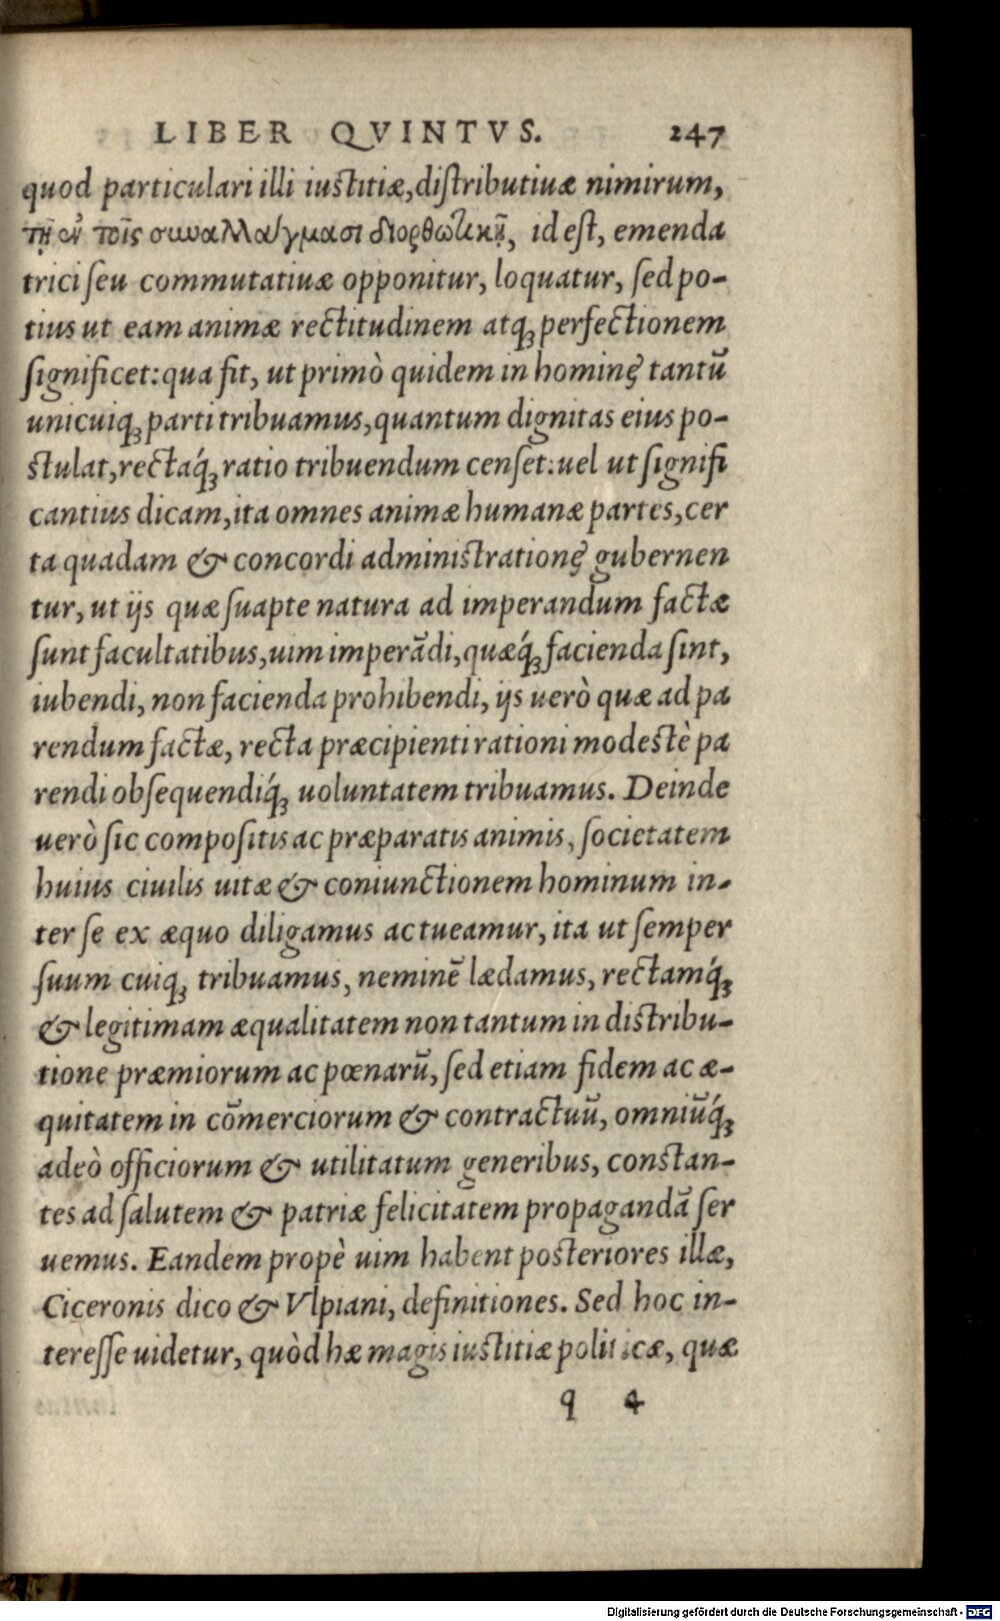 LIBER QVINTVS. 247
quod particulari illi iustitiæ, distributiuæ nimirum,
τῇ ἐν τοῖς συναλλάγμασι διορθωτικῇ, id est, emenda
trici seu commutatiuæ opponitur, loquatur, sed po-
tius ut eam animæ rectitudinem atq́ꝫ perfectionem
significet: qua fit, ut primò quidem in hominę tantū
unicuiqꝫ parti tribuamus, quantum dignitas eius po-
stulat, rectaq́ꝫ ratio tribuendum censet: uel ut signifi
cantius dicam, ita omnes animæ humanæ partes, cer
ta quadam & concordi administrationę gubernen
tur, ut ijs quæ suapte natura ad imperandum factæ
sunt facultatibus, uim imperādi, quæq́ꝫ facienda sint,
iubendi, non facienda prohibendi, ijs uerò quæ ad pa
rendum factæ, recta præcipienti rationi modestè pa
rendi obsequendiq́ꝫ uoluntatem tribuamus. Deinde
uerò sic compositis ac præparatis animis, societatem
huius ciuilis uitæ & coniunctionem hominum in-
ter se ex æquo diligamus ac tueamur, ita ut semper
suum cuiqꝫ tribuamus, neminē lædamus, rectamq́ꝫ
& legitimam æqualitatem non tantum in distribu-
tione præmiorum ac pœnarū, sed etiam fidem ac æ-
quitatem in cōmerciorum & contractuū, omniūq́ꝫ
adeò officiorum & utilitatum generibus, constan-
tes ad salutem & patriæ felicitatem propagandā ser
uemus. Eandem propè uim habent posteriores illæ,
Ciceronis dico & Vlpiani, definitiones. Sed hoc in-
teresse uidetur, quòd hæ magis iustitiæ politicæ, quæ
q 4
Digitalisierung gefördert durch die Deutsche Forschungsgemeinschaft - DFG